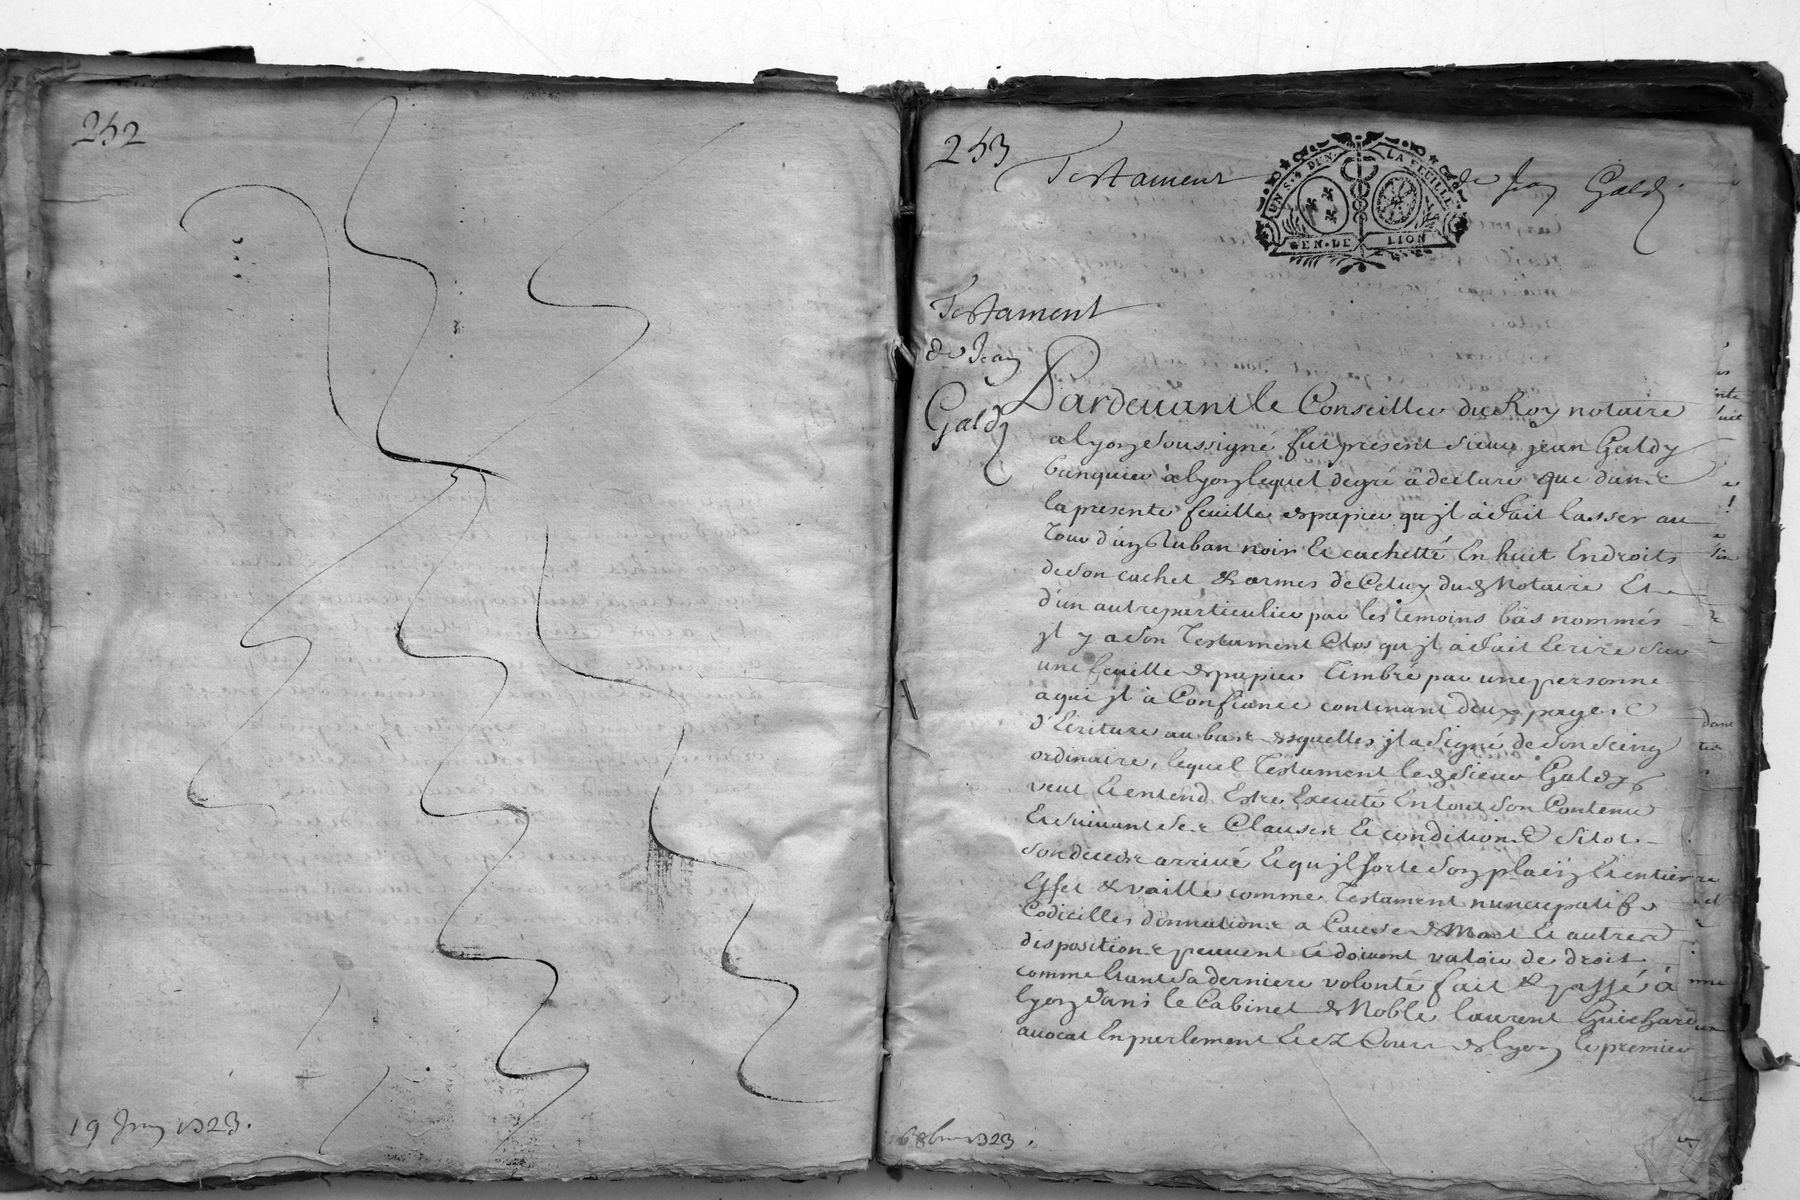 252
19 Juin 1723.
253
Testament de Jean Galdy
UN S. 4 D. UN. LA FEUILLE
GEN. DE LION
Testament
de Jean
Galdy
Pardevant le Conseiller du Roy notaire
a lyon soussigné fut present sieur jean Galdy
banquier a lyon lequel de gré a declare que dans
la presente feuille de papier qu'jl a fait lasser au
Tour d'un Ruban noir Et cachetté En huit Endroits
de son cachet & armes de Celuy dud Notaire Et
d'un autre particulier par les temoins bas nommés
jl y a son Testament Clos qu'jl a fait Ecrire sur
une feuille de papier Timbré par une personne
a qui jl à Confiance contenant deux pages
d'Ecriture au bas desquelles jl a signé de son seing
ordinaire, lequel Testament led sieur Galdy
veut Et entend Estre Executé En tout son Contenu
Et suivant ses Clauses Et conditions sitot
son deceds arrivé Et qu'jl sorte son plain Et entier
Effet & vaille comme Testament nuncupatif
Codicilles donnations a Cause de Mort Et autres
dispositions peuvent Et doivent valoir de droit
comme Etant sa derniere volonté fait & passé à
lyon dans le Cabinet de Noble laurent Guichard
avocat En parlement Et Ez Cours de lyon le premier
6 8bre 1723.